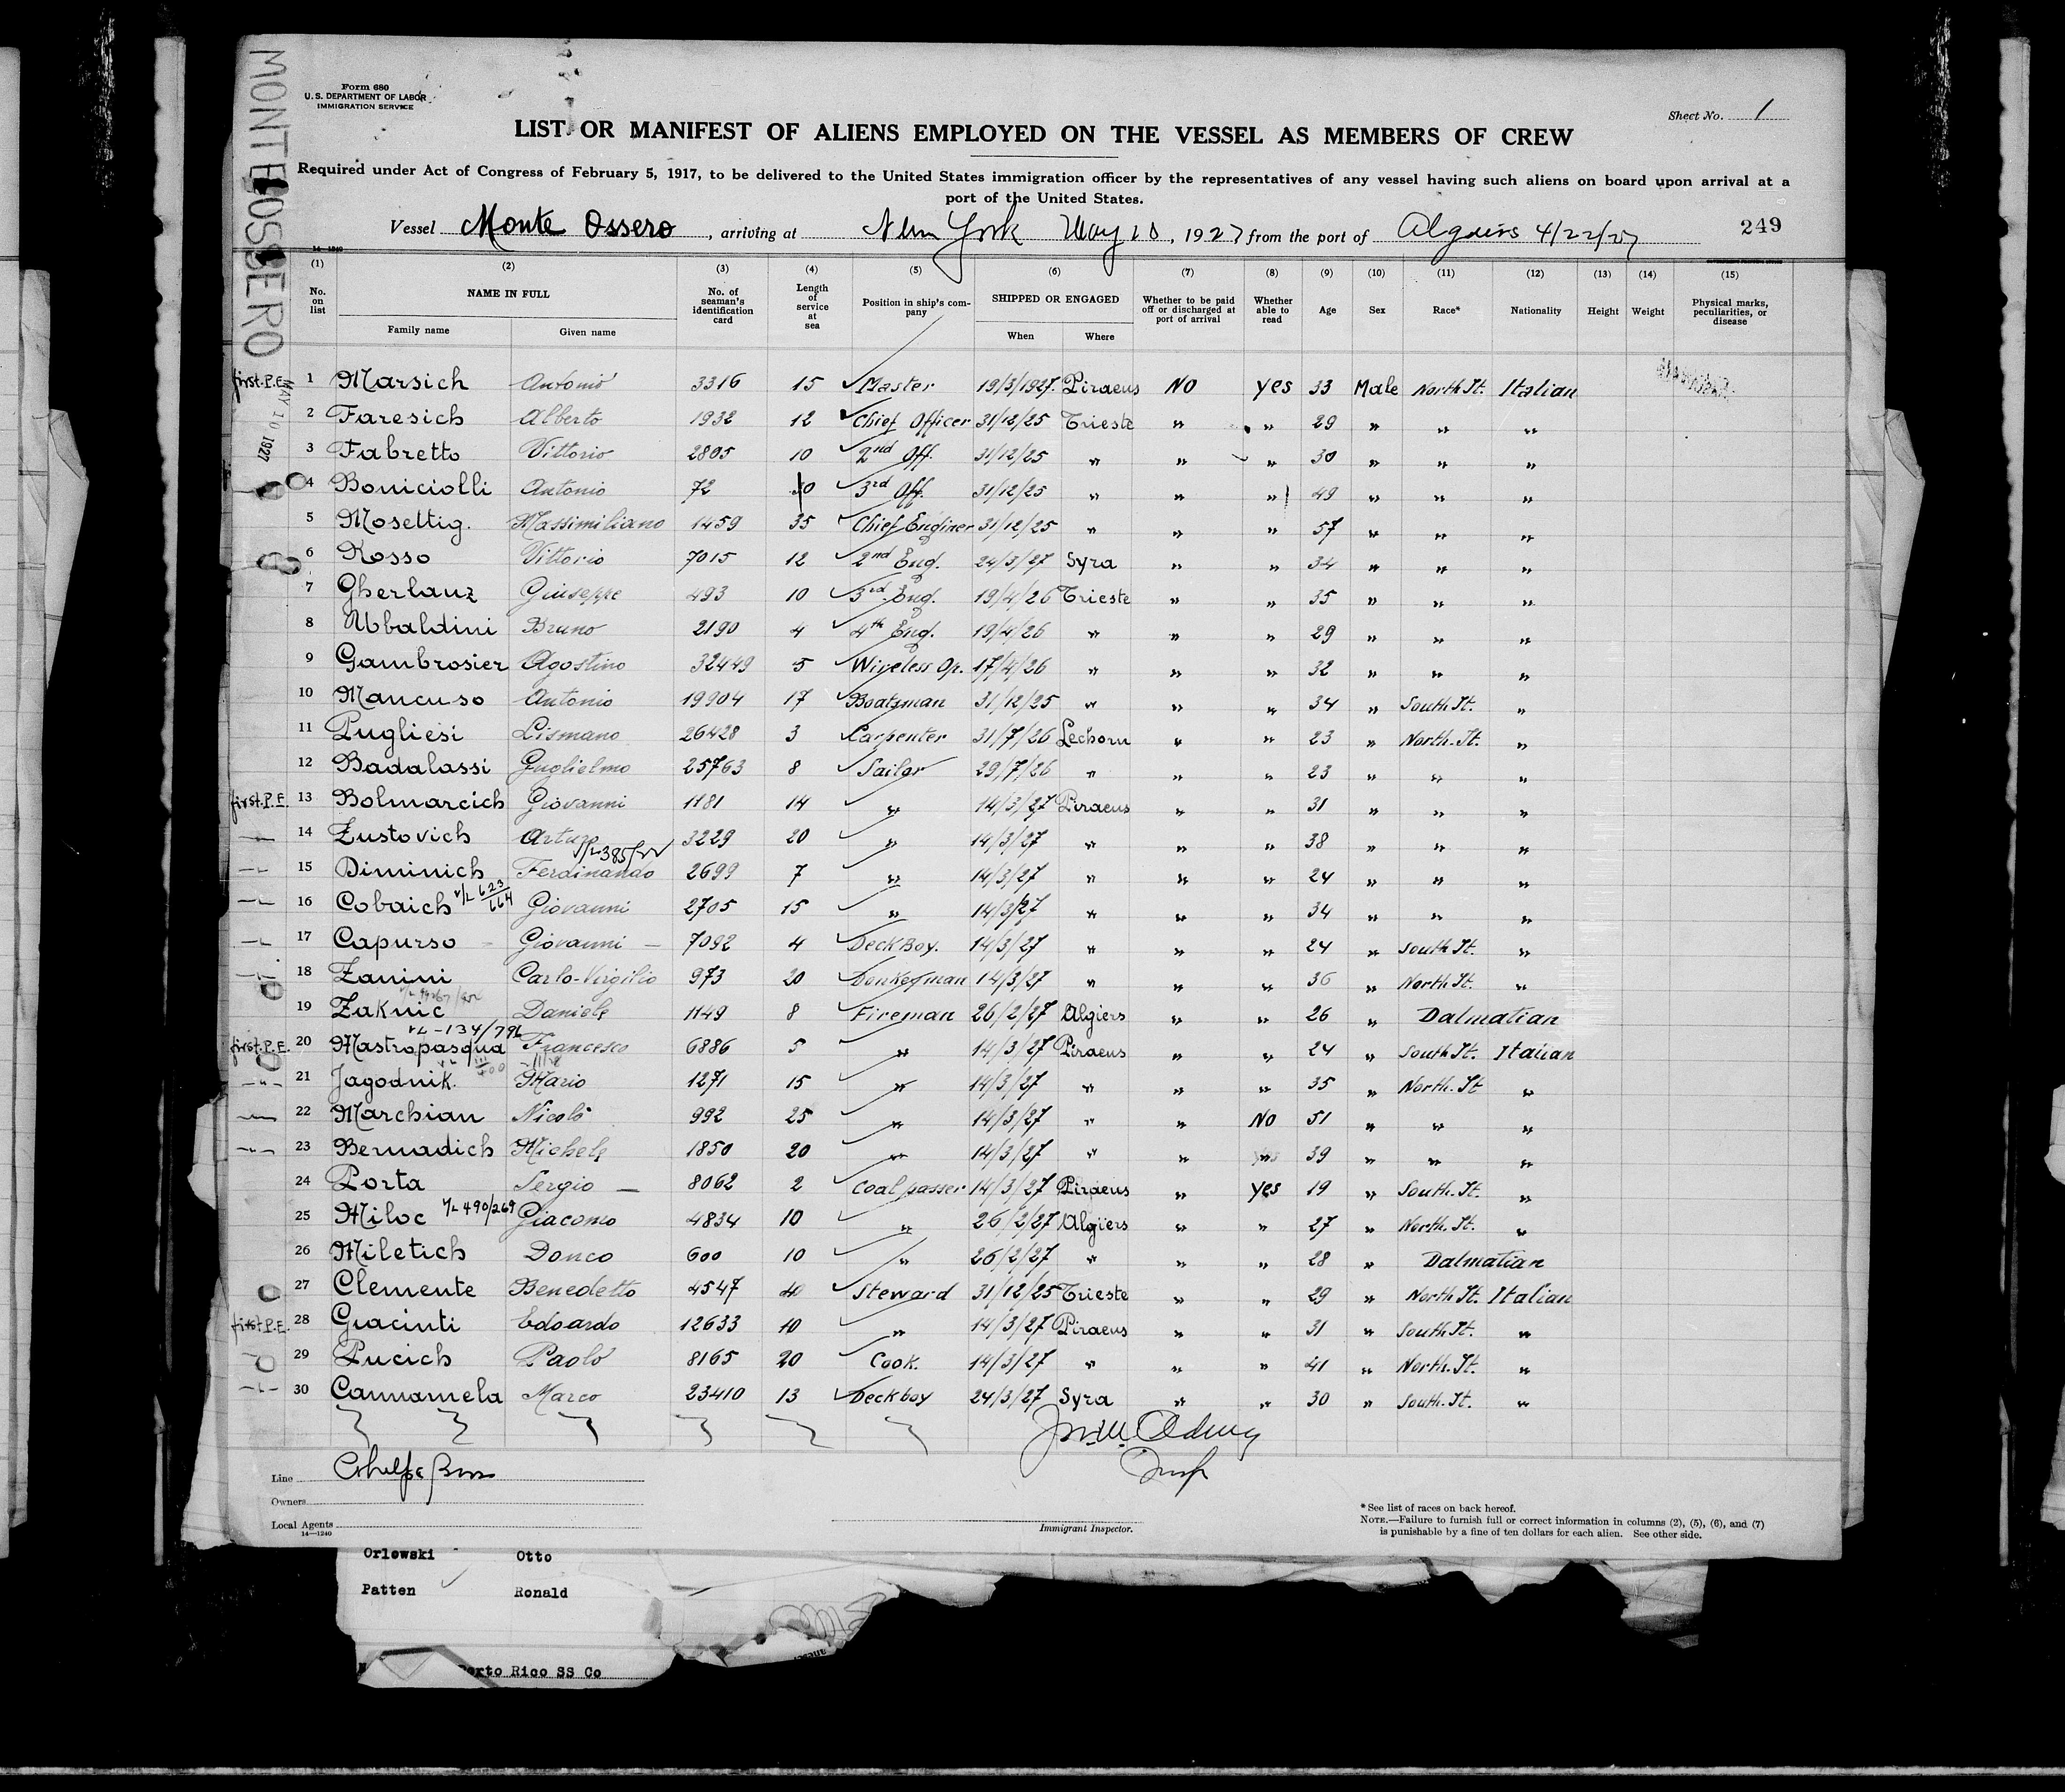 MONTE OSSERO
MAY 10 1927
Form 680
U. S. DEPARTMENT OF LABOR
IMMIGRATION SERVICE
Sheet No. 1
LIST OR MANIFEST OF ALIENS EMPLOYED ON THE VESSEL AS MEMBERS OF CREW
Required under Act of Congress of February 5, 1917, to be delivered to the United States immigration officer by the representatives of any vessel having such aliens on board upon arrival at a
port of the United States.
Vessel Monte Ossero, arriving at New York May 10, 1927 from the port of Algiers 4/22/27 249
14—1240
(1) (2) (3) (4) (5) (6) (7) (8) (9) (10) (11) (12) (13) (14) (15)
No. on list NAME IN FULL Family name Given name No. of seaman's identification card Length of service at sea Position in ship's company SHIPPED OR ENGAGED When Where Whether to be paid off or discharged at port of arrival Whether able to read Age Sex Race* Nationality Height Weight Physical marks, peculiarities, or disease
first P.E. 1 Marsich Antonio 3316 15 Master 19/3/1927 Piraeus NO yes 33 Male North It. Italian
2 Faresich Alberto 1932 12 Chief Officer 31/12/25 Trieste " " 29 " " "
3 Fabretto Vittorio 2805 10 2nd Off. 31/12/25 " " " 30 " " "
4 Boniciolli Antonio 72 30 3rd Off. 31/12/25 " " " 49 " " "
5 Mosettig. Massimiliano 1459 35 Chief Enginer 31/12/25 " " " 57 " " "
6 Rosso Vittorio 7015 12 2nd Eng. 24/3/27 Syra " " 34 " " "
7 Gherlanz Giuseppe 493 10 3rd Eng. 19/4/26 Trieste " " 35 " " "
8 Ubaldini Bruno 2190 4 4th Eng. 19/4/26 " " " 29 " " "
9 Gambrosier Agostino 32449 5 Wireless Op. 17/4/26 " " " 32 " " "
10 Mancuso Antonio 19904 17 Boatsman 31/12/25 " " " 34 " South It. "
11 Pugliesi Lismano 26428 3 Carpenter 31/7/26 Lechorn " " 23 " North. It. "
12 Badalassi Guglielmo 25763 8 Sailor 29/7/26 " " " 23 " " "
first P.E. 13 Bolmarcich Giovanni 1181 14 " 14/3/27 Piraeus " " 31 " " "
14 Zustovich Arturo 3229 20 " 14/3/27 " " " 38 " " "
15 Diminich Ferdinando 2699 7 " 14/3/27 " " " 24 " " "
16 Cobaich Giovanni 2705 15 " 14/3/27 " " " 34 " " "
17 Capurso Giovanni 7092 4 Deck Boy. 14/3/27 " " " 24 " South It. "
18 Zanini Carlo-Virgilio 973 20 Donkeyman 14/3/27 " " " 36 " North It. "
19 Zaknic Daniele 1149 8 Fireman 26/2/27 Algiers " " 26 " Dalmatian
first P.E. 20 Mastropasqua Francesco 6886 5 " 14/3/27 Piraeus " " 24 " South It. Italian
21 Jagodnik. Mario 1271 15 " 14/3/27 " " " 35 " North. It "
22 Marchian Nicolò 992 25 " 14/3/27 " " No 51 " " "
23 Bernadich Michele 1850 20 " 14/3/27 " " 39 " " "
24 Porta Sergio 8062 2 Coal passer 14/3/27 Piraeus " yes 19 " South. It. "
25 Miloc Giacomo 4834 10 " 26/2/27 Algiers " " 27 " North. It. "
26 Miletich Donco 600 10 " 26/2/27 " " " 28 " Dalmatian
27 Clemente Benedetto 4547 10 Steward 31/12/25 Trieste " " 29 " North It. Italian
first P.E. 28 Giacinti Edoardo 12633 10 " 14/3/27 Piraeus " " 31 " South It. "
29 Pucich Paolo 8165 20 Cook. 14/3/27 " " " 41 " North. It. "
30 Cannamela Marco 23410 13 Deckboy 24/3/27 Syra " " 30 " South. It. "
Line
Owners
Local Agents
14—1240
Insp
Immigrant Inspector.
*See list of races on back hereof.
NOTE.—Failure to furnish full or correct information in columns (2), (5), (6), and (7)
is punishable by a fine of ten dollars for each alien. See other side.
Orlowski Otto
Patten Ronald
Porto Rico SS Co